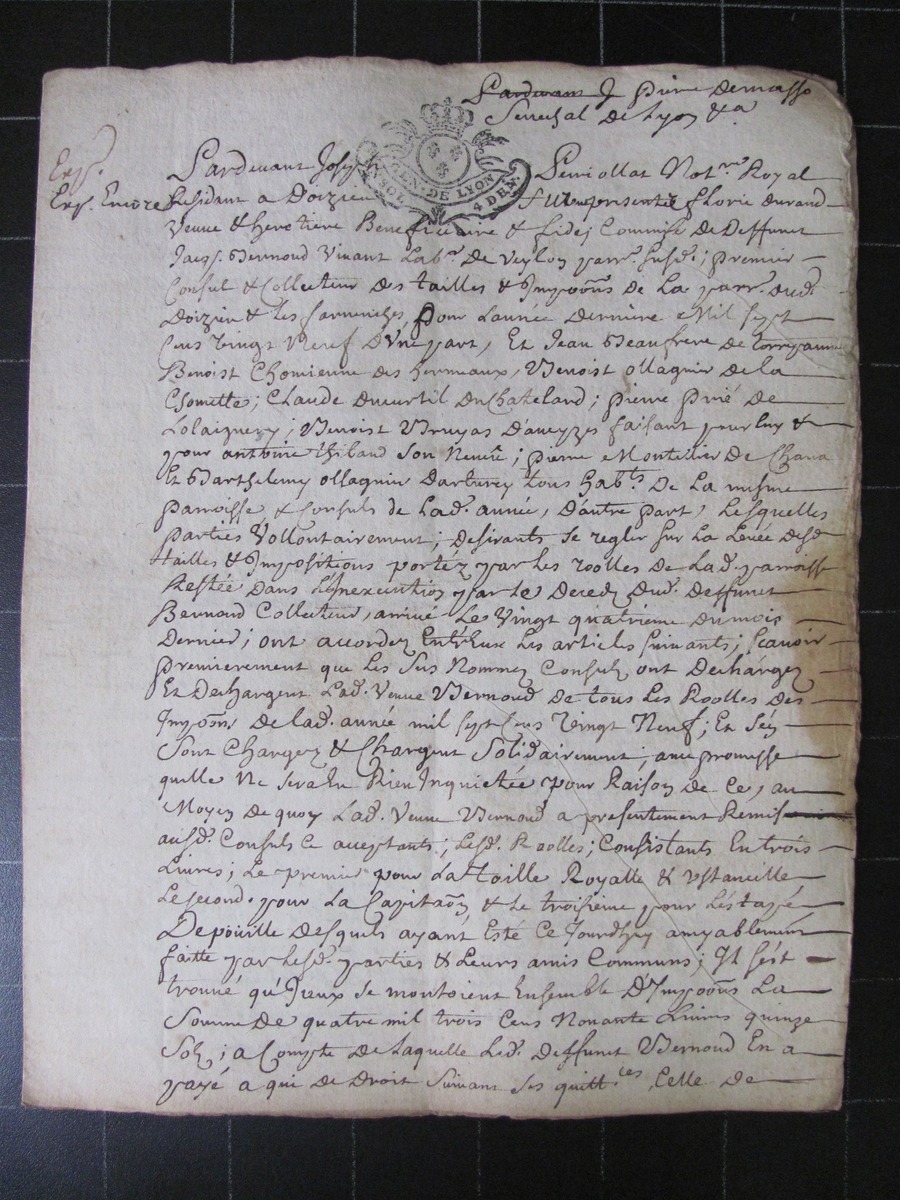 Pardevant J pierre Demasso
Senechal de Lyon &a
GEN. DE LYON
SOL 4 DEN.
Exp.
Exp. Encore
Pardevant Joseph Periollat Not.re Royal
Residant a Doizieu fut presente florie durand
veuve & heretiere Beneficiaire & fidei Commise de Deffunct
Jacq. Bernoud vivant Lab.r de Veylon parr. susd. ; premier
Consul & Collecteur des tailles & Impoõns de La parr. dud.
Doizieu & les farneriches pour Lannée derniere Mil sept
Cens vingt Neuf D'Vne part, Et Jean Beaufrere de
Benoist Chomienne des hermeaux, Benoist ollagnier de la
Chomette; Claude ducurtil du Chateland; pierre prié de
Benoist Bruyas D'aveyzes faisant pour luy &
pour antoine thibaud Son Neveu; pierre Montellier de Chana
Et Barthelemy ollagnier tous hab.ts De La mesme
parroisse & Consuls de Lad. année, D'autre part, Lesquelles
parties Vollontairement; desirants se regler sur La Levée desd.
tailles & Impositions portéz par les roolles de Lad. parroisse
Restée dans L'Inexecution par le Deced Dud. deffunct
Bernoud Collecteur, arrivé Le vingt quatrieme du mois
Dernier; ont accordez Entr'Eux Les articles suivants; scavoir
premierement que Les Sus Nommez Consulz ont Dechargez
Et Dechargent Lad. Veuve Bernoud De tous Les Roolles des
Impoõns de lad. année mil sept cens vingt Neuf; Et s'en
Sont Chargez & Chargent Solidairement, avec promesse
quelle Ne sera En Rien Inquietée pour Raison de Ce, au
Moyen de quoy Lad. Veuve Bernoud a presentement Remis
ausd. Consuls Ce acceptants; Lesd. Roolles; Consistants En trois
Livres; Le premier pour La taille Royalle & vstancille
Le second pour La Capitaõn & Le troisieme pour
Depoüille Desquels ayant Esté Ce Jourdhuy amyablement
faitte par Lesd. parties & Leurs amis Communs; Il s'est
trouvé qu'Iceux se montoient Ensemble D'Impoõns La
Somme de quatre mil trois Cens Nonante Livres quinze
Solz; a Compte de Laquelle Led. Deffunct Bernoud En a
payé a qui de Droit Suivant ses quitt.ces, Celle de